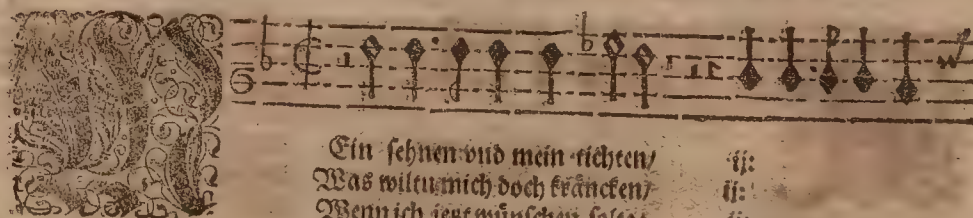 Ein sehnen vnd mein tichten/ ij:
Was wiltu mich doch kräncken/ ij:
Wenn ich jetzt wünschen solte/ ij: